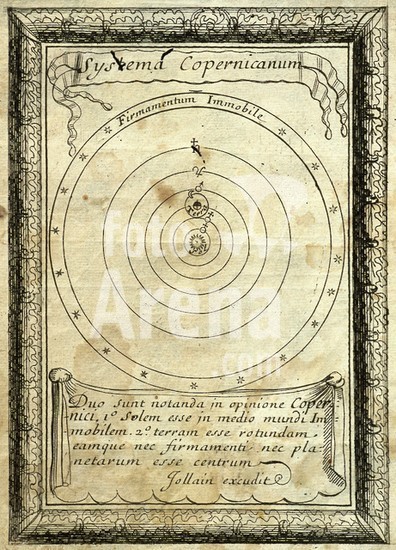 Systema Copernicanum
Firmamentum Immobile
foto
Arena
.com
Duo sunt notanda in opinione Coper-
nici, 1º Solem esse in medio mundi Im-
mobilem. 2º. terram esse rotundam,
eamque nec firmamenti nec pla-
netarum esse centrum
Jollain excudit